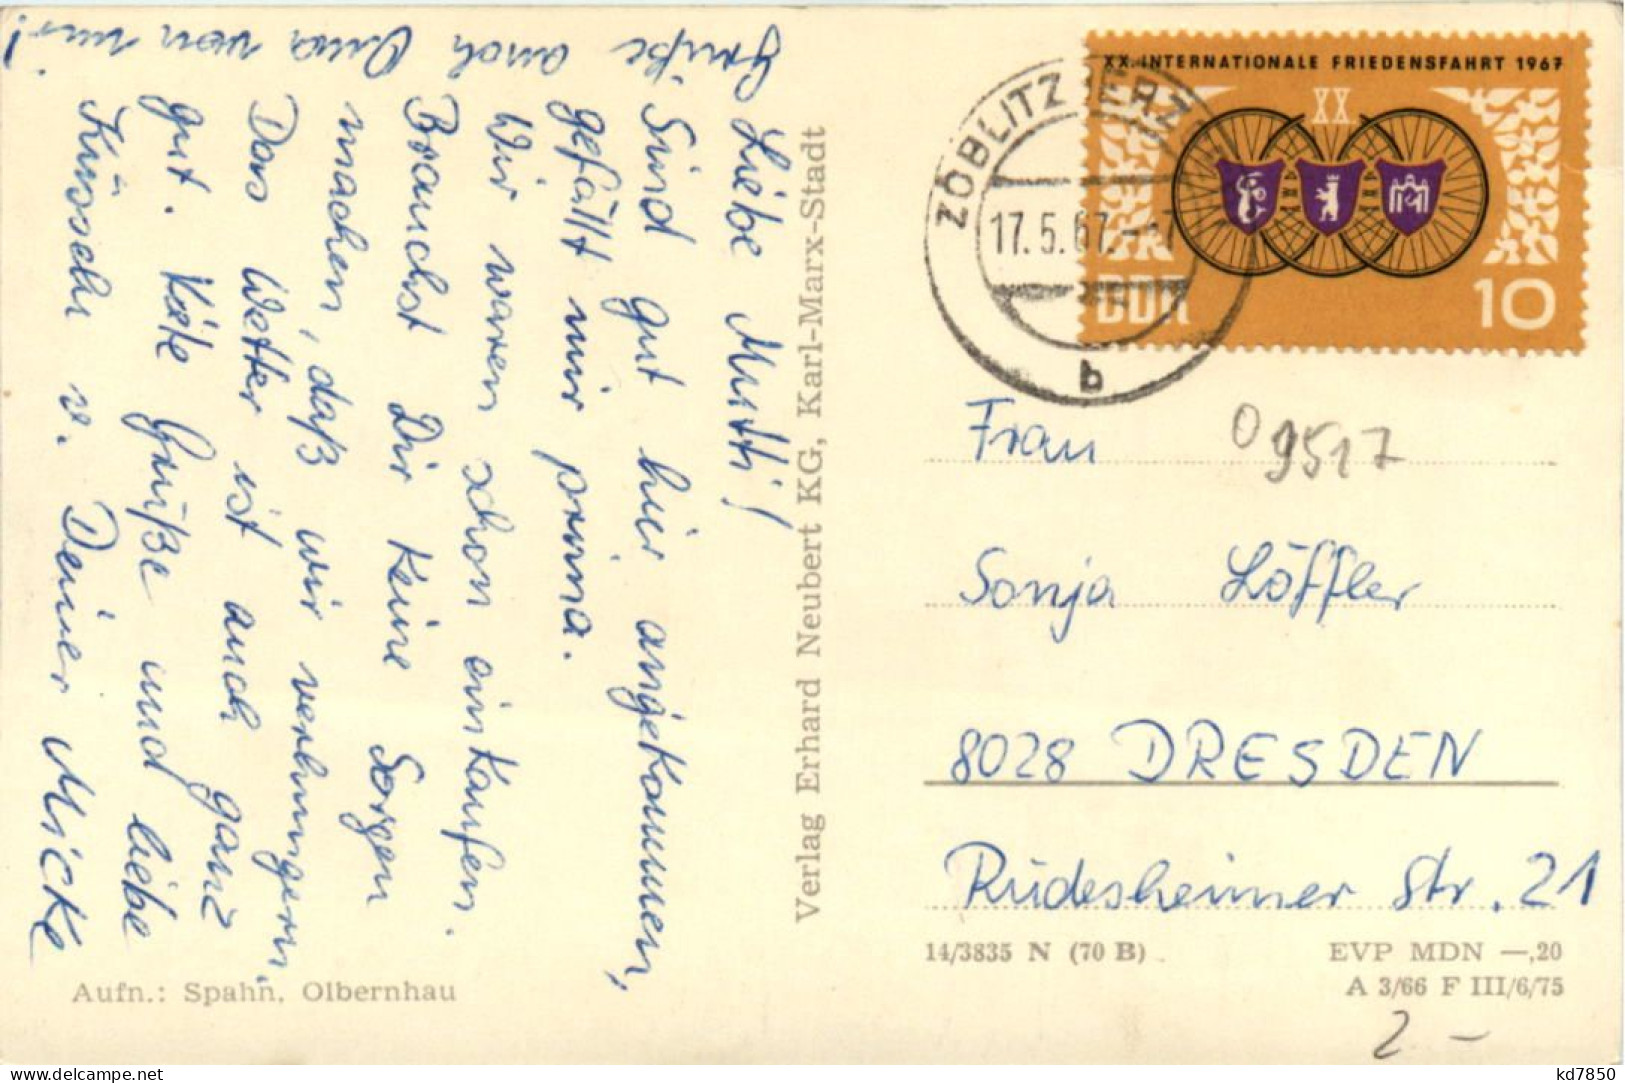 Liebe Mutti!
Sind gut hier angekommen,
gefällt mir prima.
Wir waren schon einkaufen.
Brauchst Dir keine Sorgen
machen, daß wir verhungern.
Das Wetter ist auch ganz
gut. Viele Grüße und liebe
Küsschen v. Deiner Micke
Grüße auch Oma von mir!
Verlag Erhard Neubert KG, Karl-Marx-Stadt
Aufn.: Spahn, Olbernhau
XX. INTERNATIONALE FRIEDENSFAHRT 1967
XX.
DDR
10
ZÖBLITZ (ERZGEB)
17.5.67.-17
b
09517
Frau
Sonja Löffler
8028 DRESDEN
Rüdesheimer Str. 21
14/3835 N (70 B)
EVP MDN —,20
A 3/66 F III/6/75
2-
delcampe.net
kd7850